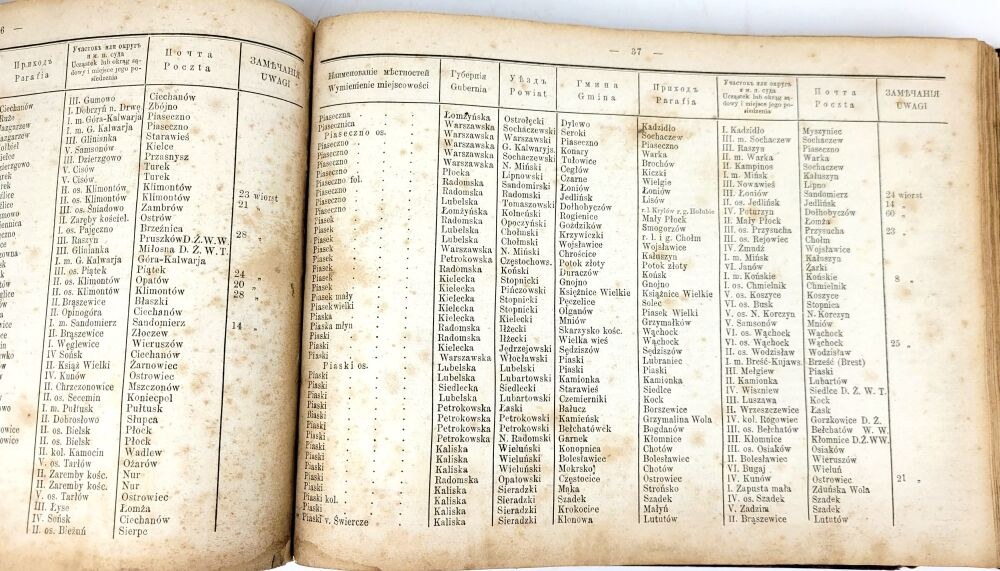 6 —
Приходъ
Parafia
Участокъ или округъ
и м. п. суда
Ucząstek lub okrąg są-
dowy i miejsce jego po-
siedzenia
Почта
Poczta
ЗАМѢЧАНІЯ
UWAGI
III. Gumowo
I. Dobrzyń n. Drwę.
I. m. Góra-Kalwarja
I. m. G. Kalwarja
III. Glinianka
V. Samsonów
III. Dzierzgowo
V. Cisów
V. Cisów
II. os. Klimontów
II. os. Klimontów
III. os. Śniadowo
II. Zaręby kościel.
I. os. Pajęczno
III. Raszyn
III. Glinianka
I. m. G. Kalwarja
III. os. Piątek
II. os. Klimontów
II. os. Klimontów
II. Brąszewice
II. Opinogóra
I. m. Sandomierz
II. Brąszewice
I. Węglewice
IV Sońsk
II. Książ Wielki
IV. Kunów
II. Chrzczonowice
II. os. Secemin
I. m. Pułtusk
II. Dobrosłowo
II. os. Bielsk
II. os. Bielsk
II. kol. Kamocin
V. os. Tarłów
II. Zaremby kośc.
II. Zaremby kośc.
V. os. Tarłów
III. Łyse
IV. Sońsk
II. os. Bieżuń
Ciechanów
Zbójno
Piaseczno
Piaseczno
Starawieś
Kielce
Przasnysz
Turek
Turek
Klimontów
Klimontów
Zambrów
Ostrów
Brzeźnica
Pruszków D.Ż.W.W.
Miłosna D. Ż. W. T.
Góra-Kalwarja
Piątek
Opatów
Klimontów
Błaszki
Ciechanów
Sandomierz
Złoczew
Wieruszów
Ciechanów
Żarnowiec
Ostrowiec
Mszczonów
Koniecpol
Pułtusk
Słupca
Płock
Płock
Wadlew
Ożarów
Nur
Nur
Ostrowiec
Łomża
Ciechanów
Sierpc
23 wiorst
21 „
28 „
24 „
20 „
28 „
14 „
— 37 —
Наименованіе мѣстностей
Wymienienie miejscowości
Губернія
Gubernia
Уѣздъ
Powiat
Гмина
Gmina
Приходъ
Parafia
Участокъ или округъ
и м. п. суда
Ucząstek lub okrąg są-
dowy i miejsce jego po-
siedzenia
Почта
Poczta
ЗАМѢЧАНІЯ
UWAGI
Piaseczna
Piasecznica
Piaseczno os.
Piaseczno
Piaseczno
Piaseczno
Piaseczno fol.
Piaseczno
Piaseczno
Piasek
Piasek
Piasek
Piasek
Piasek
Piasek
Piasek
Piasek mały
Piasek wielki
Piaska
Piaska młyn
Piaski
Piaski
Piaski os.
Piaski
Piaski
Piaski
Piaski
Piaski
Piaski
Piaski
Piaski
Piaski
Piaski kol.
Piaski
Piaski v. Świercze
Łomżyńska
Warszawska
Warszawska
Warszawska
Warszawska
Płocka
Radomska
Radomska
Lubelska
Łomżyńska
Radomska
Lubelska
Lubelska
Warszawska
Petrokowska
Radomska
Kielecka
Kielecka
Kielecka
Kielecka
Radomska
Radomska
Kielecka
Warszawska
Lubelska
Lubelska
Siedlecka
Lubelska
Petrokowska
Petrokowska
Petrokowska
Petrokowska
Kaliska
Kaliska
Radomska
Kaliska
Kaliska
Kaliska
Ostrołęcki
Sochaczewski
Warszawski
G. Kalwaryjs.
Sochaczewski
N. Miński
Lipnowski
Sandomirski
Radomski
Tomaszowski
Kolneński
Opoczyński
Chołmski
Chołmski
N. Miński
Częstochows.
Koński
Stopnicki
Pińczowski
Stopnicki
Stopnicki
Iłżecki
Iłżecki
Jędrzejowski
Włocławski
Lubelski
Lubartowski
Siedlecki
Lubartowski
Łaski
Petrokowski
Petrokowski
N. Radomski
Wieluński
Wieluński
Wieluński
Opatowski
Sieradzki
Sieradzki
Sieradzki
Dylewo
Seroki
Piaseczno
Konary
Tułowice
Cegłów
Czarne
Łoniów
Jedlińsk
Dołhobyczów
Rogienice
Goździków
Krzywiczki
Wojsławice
Chrościce
Potok złoty
Duraczów
Gnojno
Książnice Wielkie
Pęczelice
Olganów
Mniów
Skarzysko kośc.
Wielka wieś
Sędziszów
Piaski
Piaski
Kamionka
Starawieś
Czemierniki
Bałucz
Kamieńsk
Bełchatówek
Garnek
Konopnica
Bolesławiec
Mokrsko
Częstocice
Męka
Szadek
Krokocice
Klonowa
Kadzidło
Sochaczew
Piaseczno
Warka
Brochów
Kiczki
Wielgie
Łoniów
Jedlińsk
r.l Kryłów r.g. Hołubie
Mały Płock
Smogorzów
r. l. i g. Chołm
Wojsławice
Kałuszyn
Potok złoty
Końsk
Gnojno
Książnice Wielkie
Solec
Piasek Wielki
Grzymałków
Wąchock
Wąchock
Sędziszów
Lubraniec
Piaski
Kamionka
Siedlce
Kock
Borszewice
Grzymalina Wola
Bogdanów
Kłomnice
Chotów
Bolesławiec
Chotów
Ostrowiec
Strońsko
Szadek
Małyń
Lututów
I. Kadzidło
III. m. Sochaczew
III. Raszyn
II. m. Warka
II. Kampinos
I. m. Mińsk
III. Nowawieś
III. Łoniów
II. os. Jedlińsk
IV. Poturzyn
II. Mały Płock
III. os. Przysucha
III. os. Rejowiec
IV. Żmudź
I. m. Mińsk
VI. Janów
I. m. Końskie
I. os. Chmielnik
V. os. Koszyce
VI. os. Busk
V. os. N. Korczyn
V. Samsonów
VI. os. Wąchock
VI. os. Wąchock
II. os. Wodzisław
I. m. Brześć-Kujaws.
III. Mełgiew
II. Kamionka
IV. Wiszniew
III. Luszawa
II. Wrzeszczewice
IV. kol. Rogowiec
III. os. Bełchatów
III. Kłomnice
III. os. Osiaków
II. Bolesławice
VI. Bugaj
IV. Kunów
I. Zapusta mała
IV. os. Szadek
V. Zadzim
II. Brąszewice
Myszyniec
Sochaczew
Piaseczno
Warka
Sochaczew
Kałuszyn
Lipno
Sandomierz
Jedlińsk
Dołhobyczów
Łomża
Przysucha
Chołm
Wojsławice
Kałuszyn
Żarki
Końskie
Chmielnik
Koszyce
Stopnica
N. Korczyn
Mniów
Wąchock
Wąchock
Wodzisław
Brześć (Brest)
Piaski
Lubartów
Siedlce D. Ż. W. T.
Kock
Łask
Gorzkowice D. Ż.
Bełchatów W. W.
Kłomnice D.Ż.WW.
Osiaków
Wieruszów
Wieluń
Ostrowiec
Zduńska Wola
Szadek
Szadek
Lututów
24 wiorst
14 „
60 „
23 „
8 „
25 „
21 „